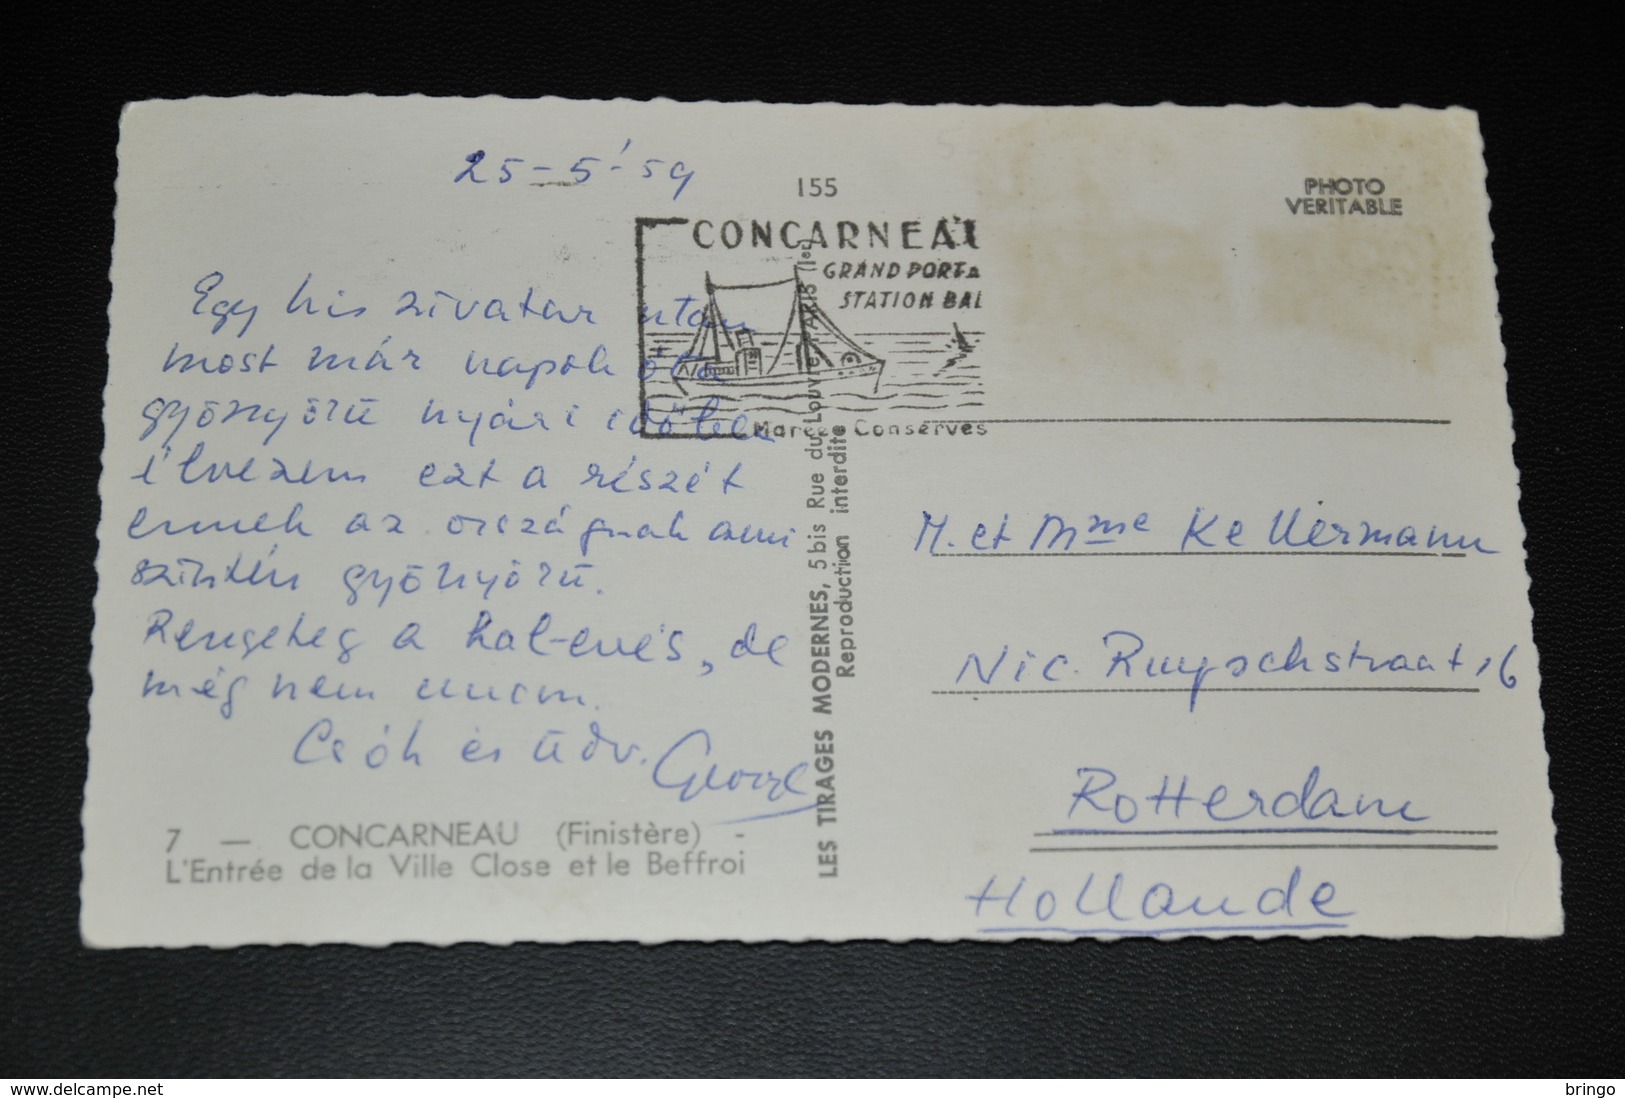 25-5-'59
Egy kis zivatar után
most már napok óta
gyönyörű nyári időben
élvezem ezt a részét
ennek az országnak ami
szintén gyönyörű.
Rengeteg a hal-evés, de
még nem unom.
Csók és üdv.
7 — CONCARNEAU (Finistère) -
L'Entrée de la Ville Close et le Beffroi
155
CONCARNEAU
GRAND PORT
STATION BAL
Conserves
LES TIRAGES MODERNES, 5 bis Rue du Louvre, PARIS (1er)
Reproduction interdite
PHOTO
VERITABLE
M. et Mme Kellermann
Nic. Ruyschstraat 16
Rotterdam
Hollande
www.delcampe.net
bringo